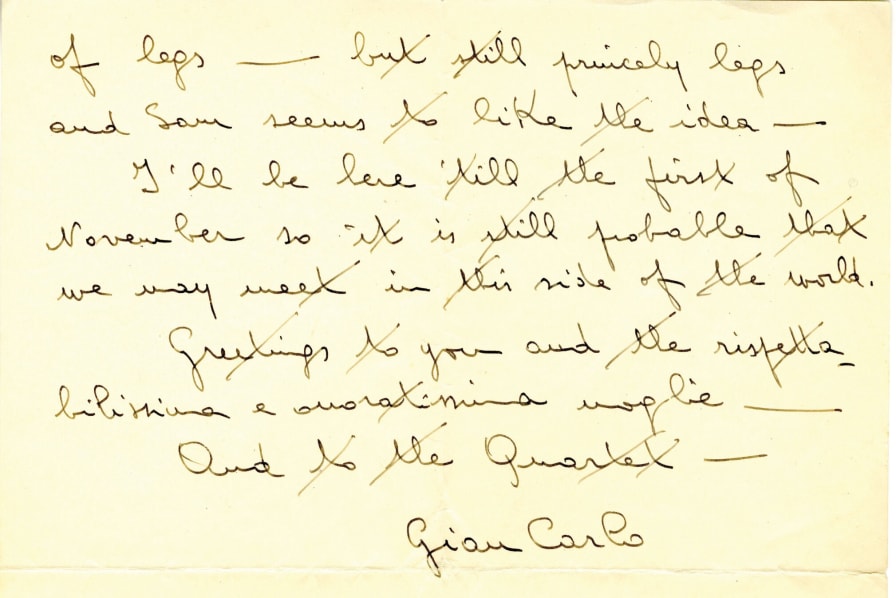 of legs — but still princely legs
and Sam seems to like the idea —
I'll be here 'till the first of
November so it is still probable that
we may meet in this side of the world.
Greetings to you and the rispetta_
bilissima e onoratissima moglie —
And to the Quartet —
Gian Carlo